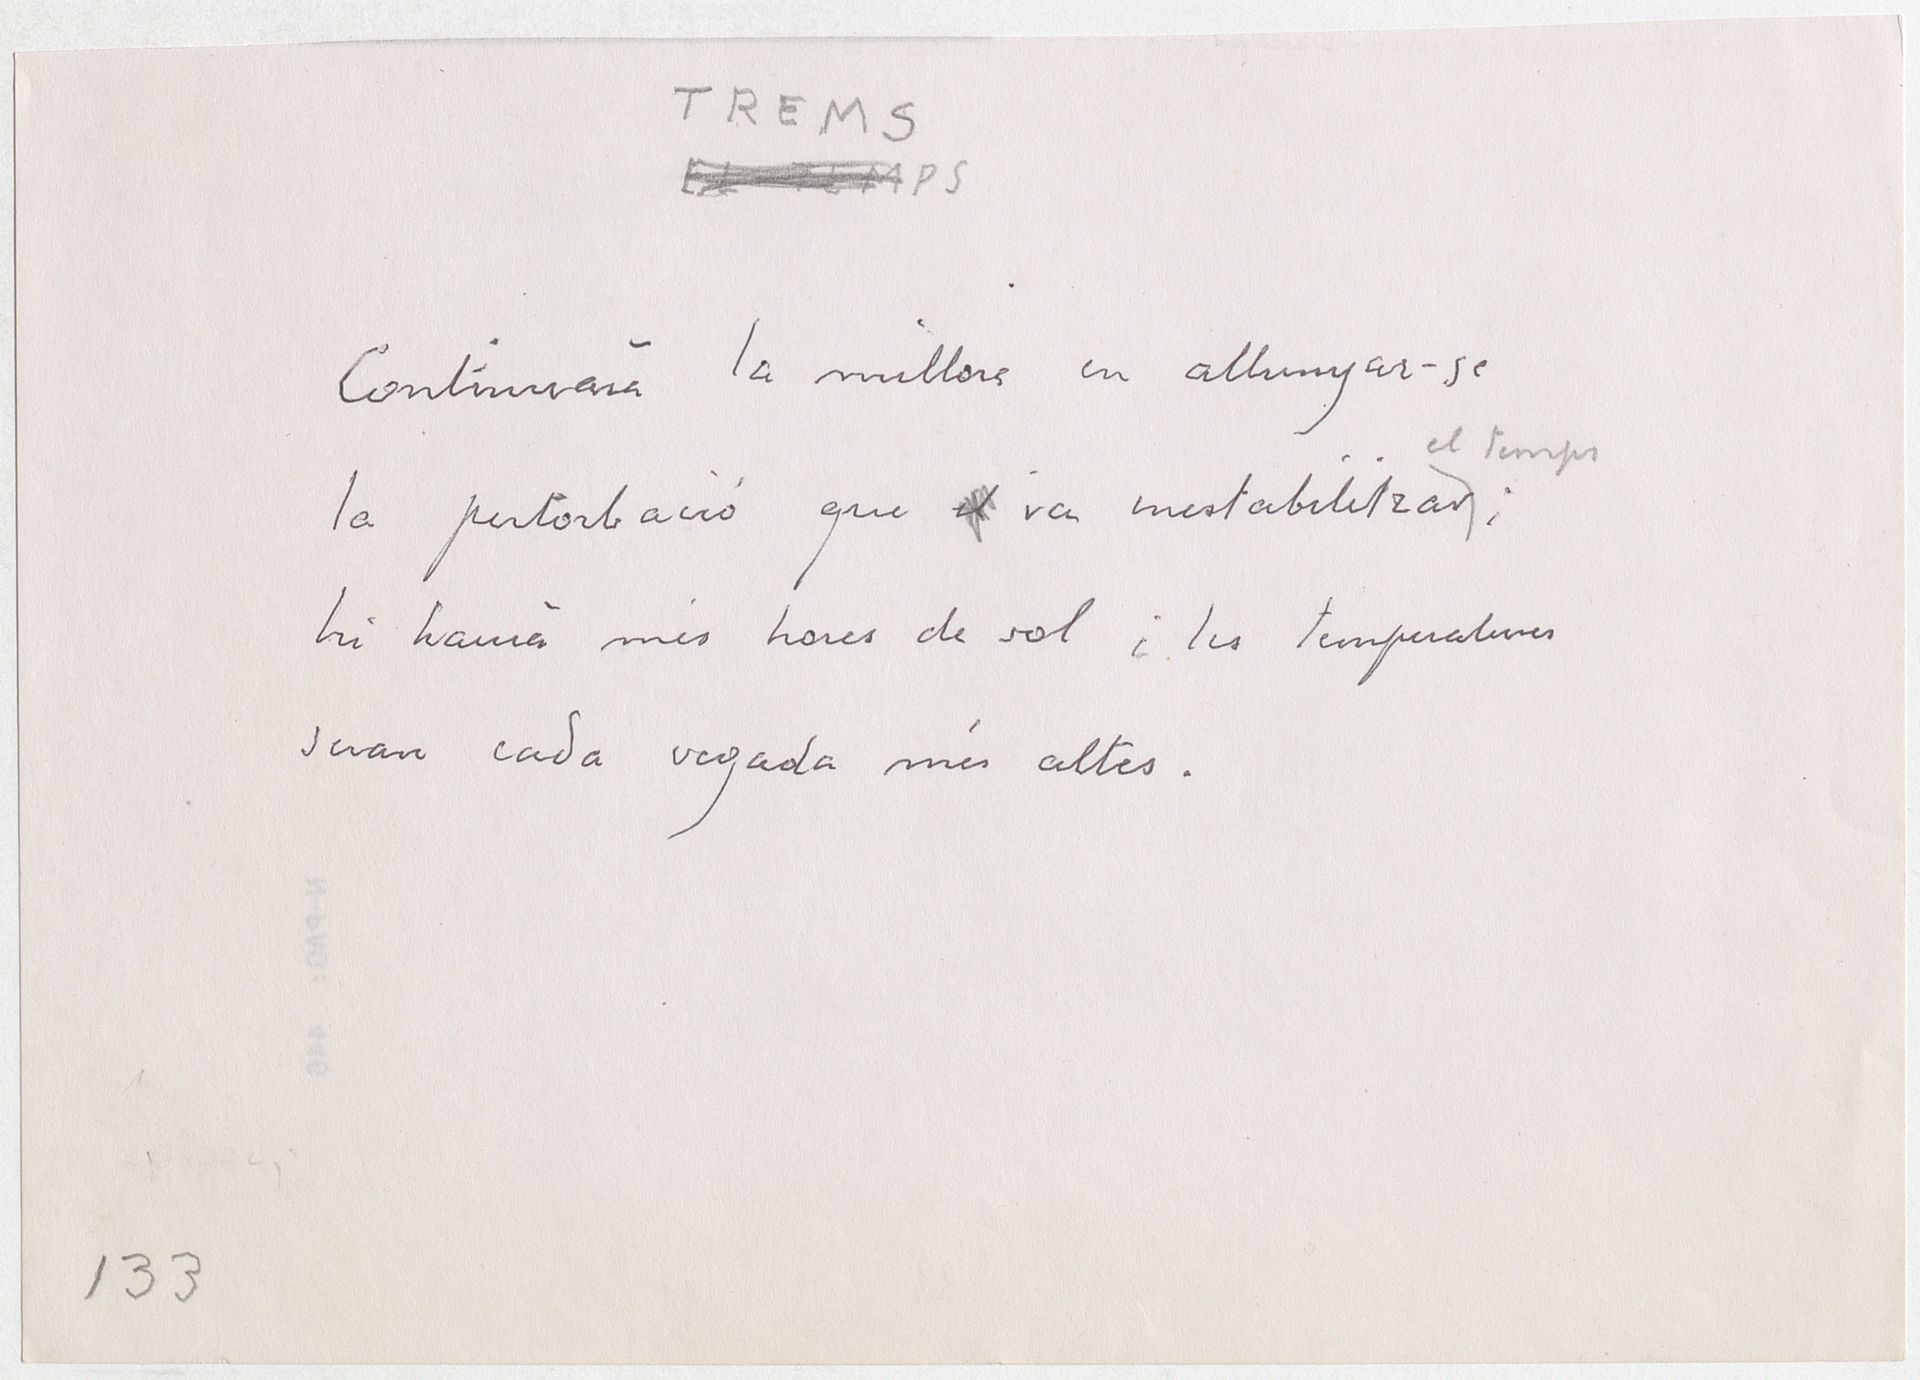 TREMS
EL TEMPS
Continuarà la millora en allunyar-se
el temps
la pertorbació que va inestabilitzar i
hi haurà més hores de sol i les temperatures
seran cada vegada més altes.
N-PAG: 446
133